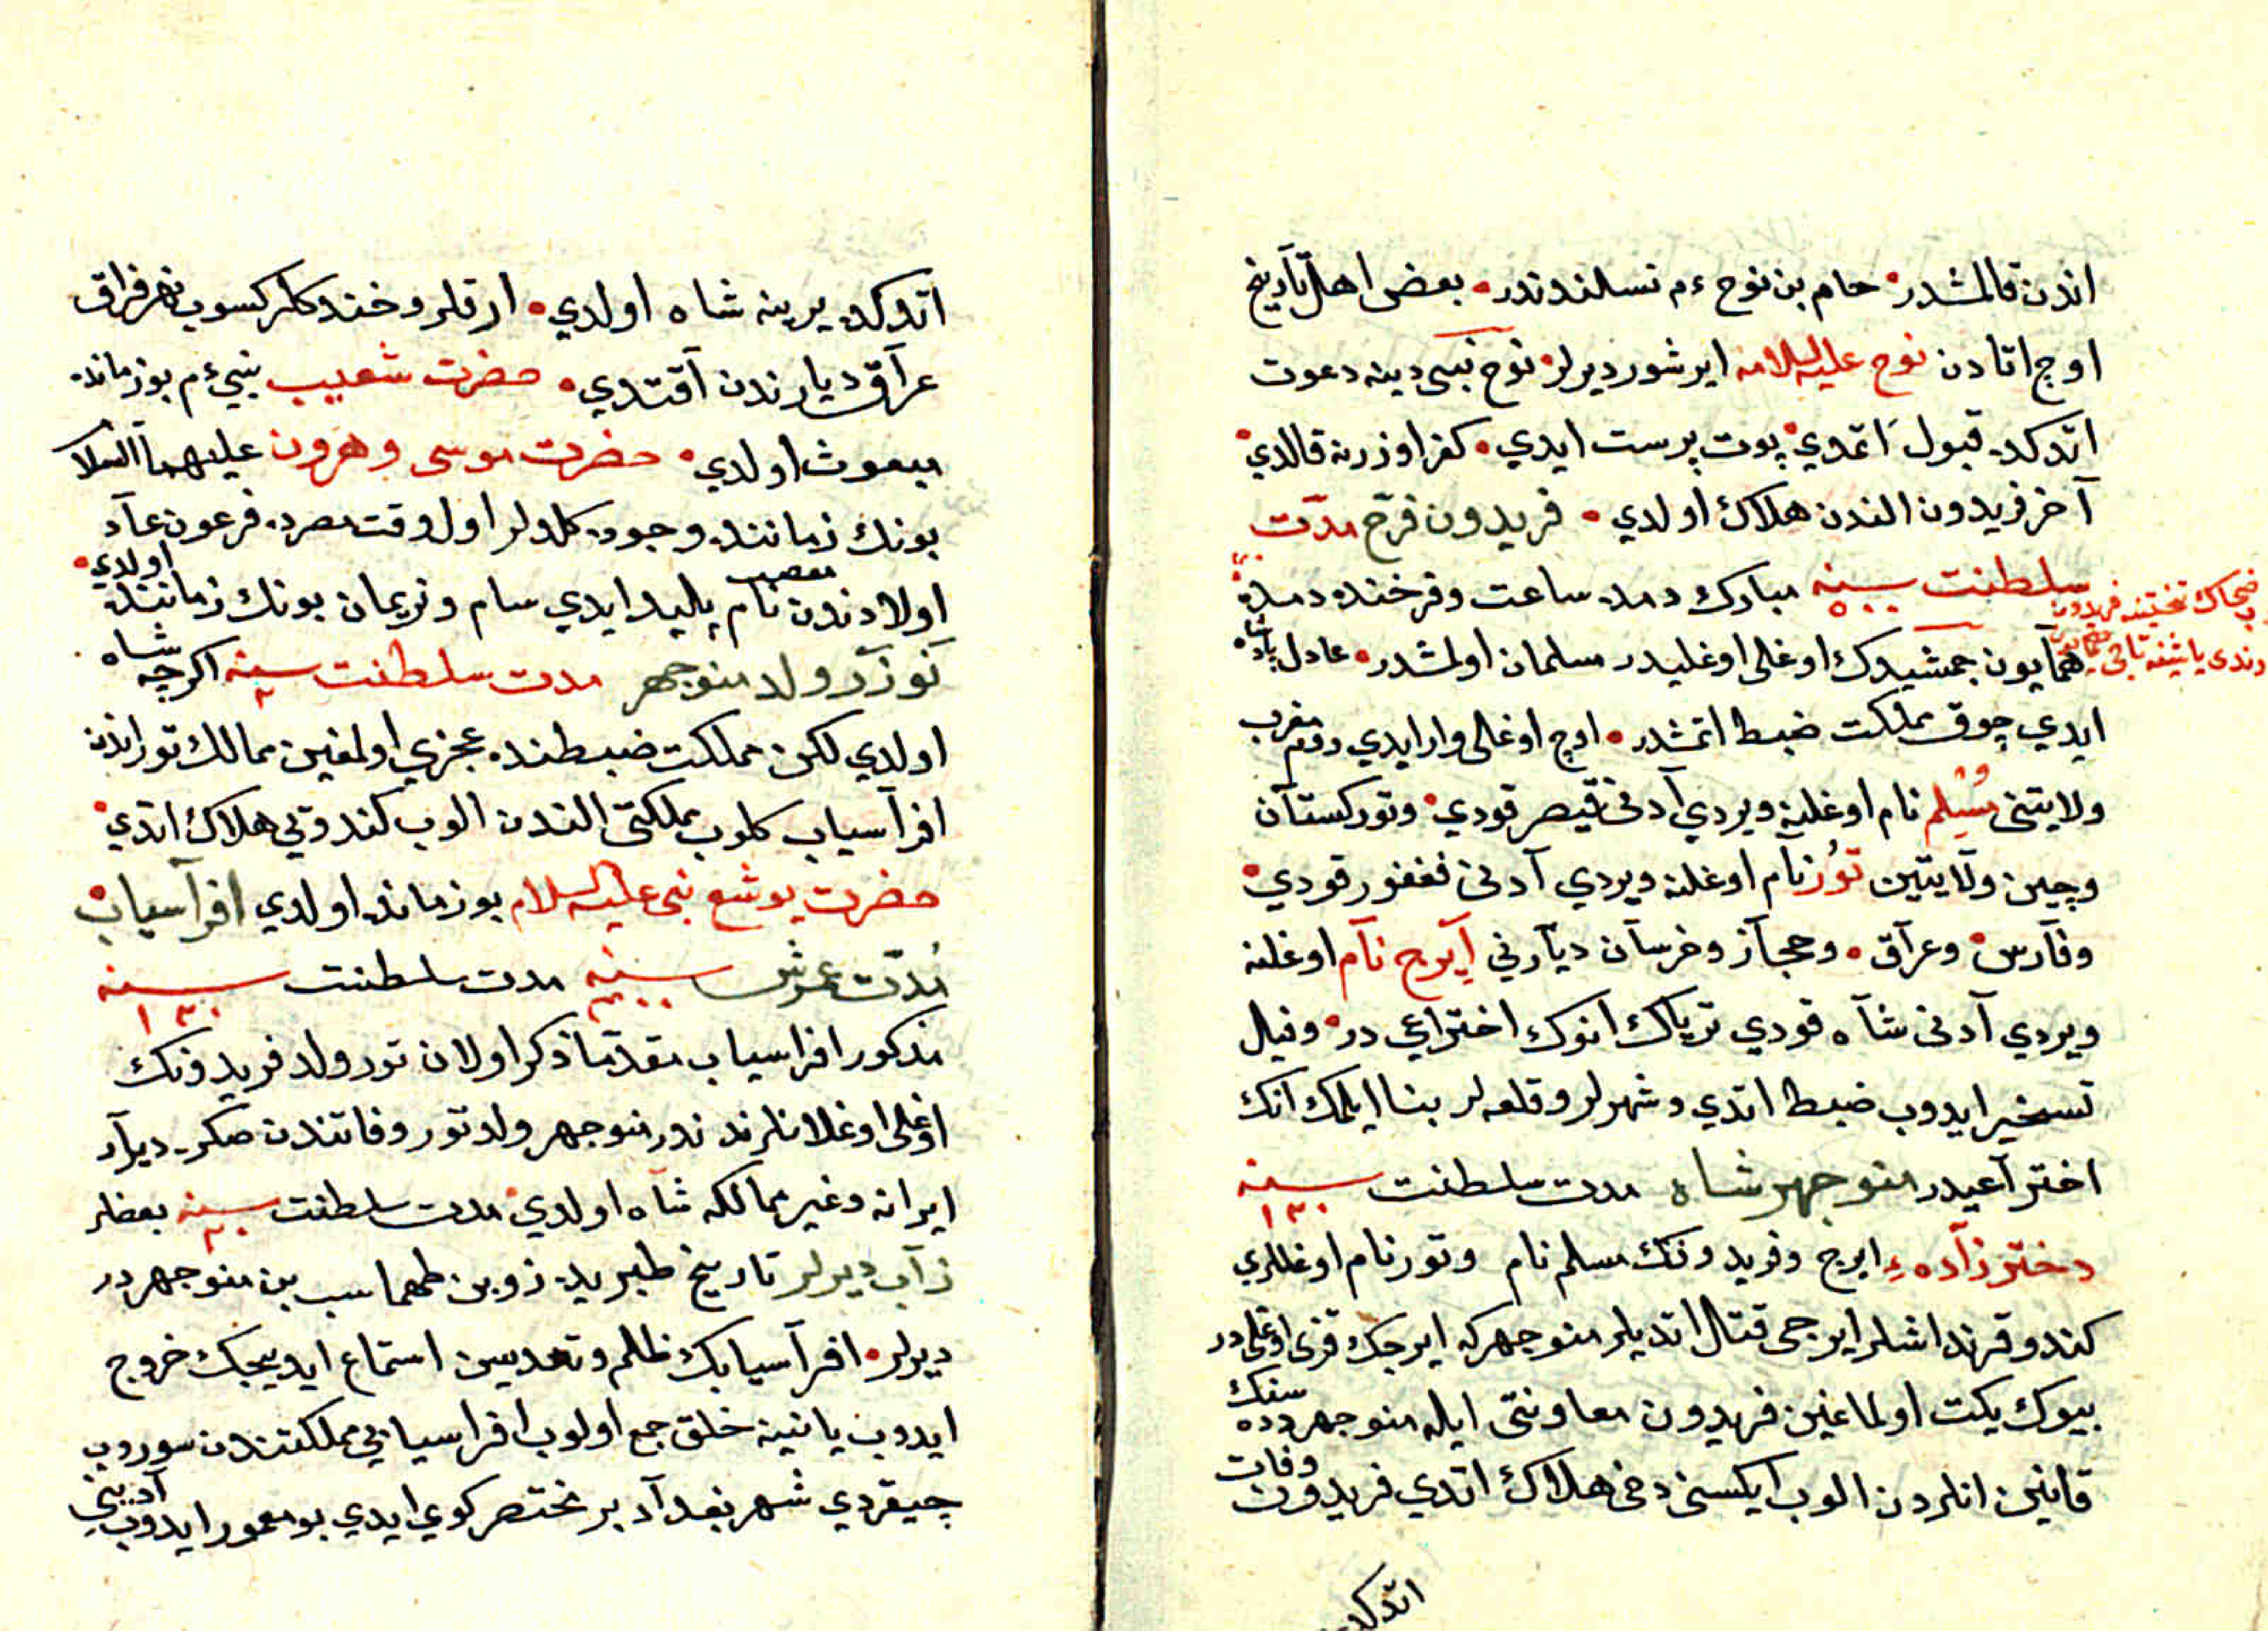 اندن قالمشدر حام بن نوح ءم نسلندندر بعض اهل تآريخ
اوج اتادن نوح عليه السلامه ايرشور ديرلر نوح نبى دينه دعوت
اتدكده قبول اتمدي پوت پرست ايدي كفر اوزرنه قالدي
آخر فريدون الندن هلاك اولدي فريدون فرخ مدت
سلطنت سنه ٥٠٠ مبارك دمده ساعت وفرخنده دمده
همآيون جمشيدك اوغلى اوغليدر مسلمان اولمشدر عادل پادشاه
ضحاك تختينه فريدون
ايدي چوق مملكت ضبط اتمشدر اوج اوغلى وار ايدي روم مغرب
ولايتنى سلم نام اوغلنه ويردي آدنى قيصر قودي وتوركستآن
وچين ولآيتين تور نآم اوغلنه ويردي آدنى فغفور قودي
وفآرس وعرآق وحجآز وخرسآن ديآرني آيرج نآم اوغلنه
ويردي آدنى شآه قودي ترياك انوك اختراعي در وفيل
تسخير ايدوب ضبط اتدي وشهرلر وقلعه لر بنا ايلمك آنك
اخترآعيدر منوجهر شاه مدت سلطنت سنه ١٣٠
دختر زآده ء ايرج وفريدونك مسلم نام وتور نام اوغللري
كندو قرنداشلر ايرجى قتال اتديلر منوجهركه ايرجك قزى اوغلى در
بيوك يكت اولماغين فريدون معاونتى ايله منوجهر دده سنك
قانين انلردن الوب ايكسنى دخى هلاك اتدي فريدون وفات
اتدكده
اتدكده يرينه شاه اولدي ارقلر وخندكلر كسوب نهر فراق
عرآق ديارندن آقتدي حضرت شعيب نبيء م بوزمانده
مبعوث اولدي حضرت موسى وهرون عليهما السلام
بونك زماننده وجوده كلدولر اول وقت مصرده فرعون عآد
اولادندن مصعب نام پليد ايدي سام ونريمان بونك زماننده اولدي
نوزر ولد منوجهر مدت سلطنت سنه اكرچه شاه
اولدي لكن مملكت ضبطنده عجزي اولمغين ممالك توراندن
افرآسياب كلوب مملكتى الندن الوب كندوتي هلاك اتدي
حضرت يوشع نبى عليه السلام بوزمانده اولدي افرآسياب
مدت عمرش سنه مدت سلطنت سنه ١٣٠
مذكور افراسياب مقدما ذكر اولان تور ولد فريدونك
اوغلى اوغلانلرندندر منوجهر ولد تور وفاتندن صكره ديآر
ايرانه وغير ممالكه شاه اولدي مدت سلطنت سنه بعضلر
زآب ديرلر تاريخ طبريده زوبن طهماسب بن منوجهردر
ديرلر افرآسيابك ظلم وتعديسن استماع ايديجك خروج
ايدوب ياننه خلق جمع اولوب افراسيابي مملكتندن سوروب
چيقردي شهر بغدآد بر مختصر كوي ايدي بو معمور ايدوب آديني